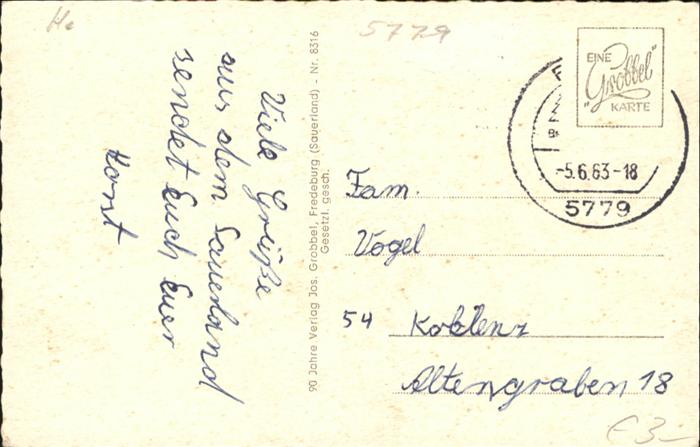 He
5779
Viele Grüße
aus dem Sauerland
sendet Euch Euer
Horst
90 Jahre Verlag Jos. Grobbel, Fredeburg (Sauerland) - Nr. 8316
Gesetzl. gesch.
EINE
"Grobbel"
KARTE
-5.6.63-18
5779
Fam.
Vogel
54 Koblenz
Altengraben 18
€ 3.-